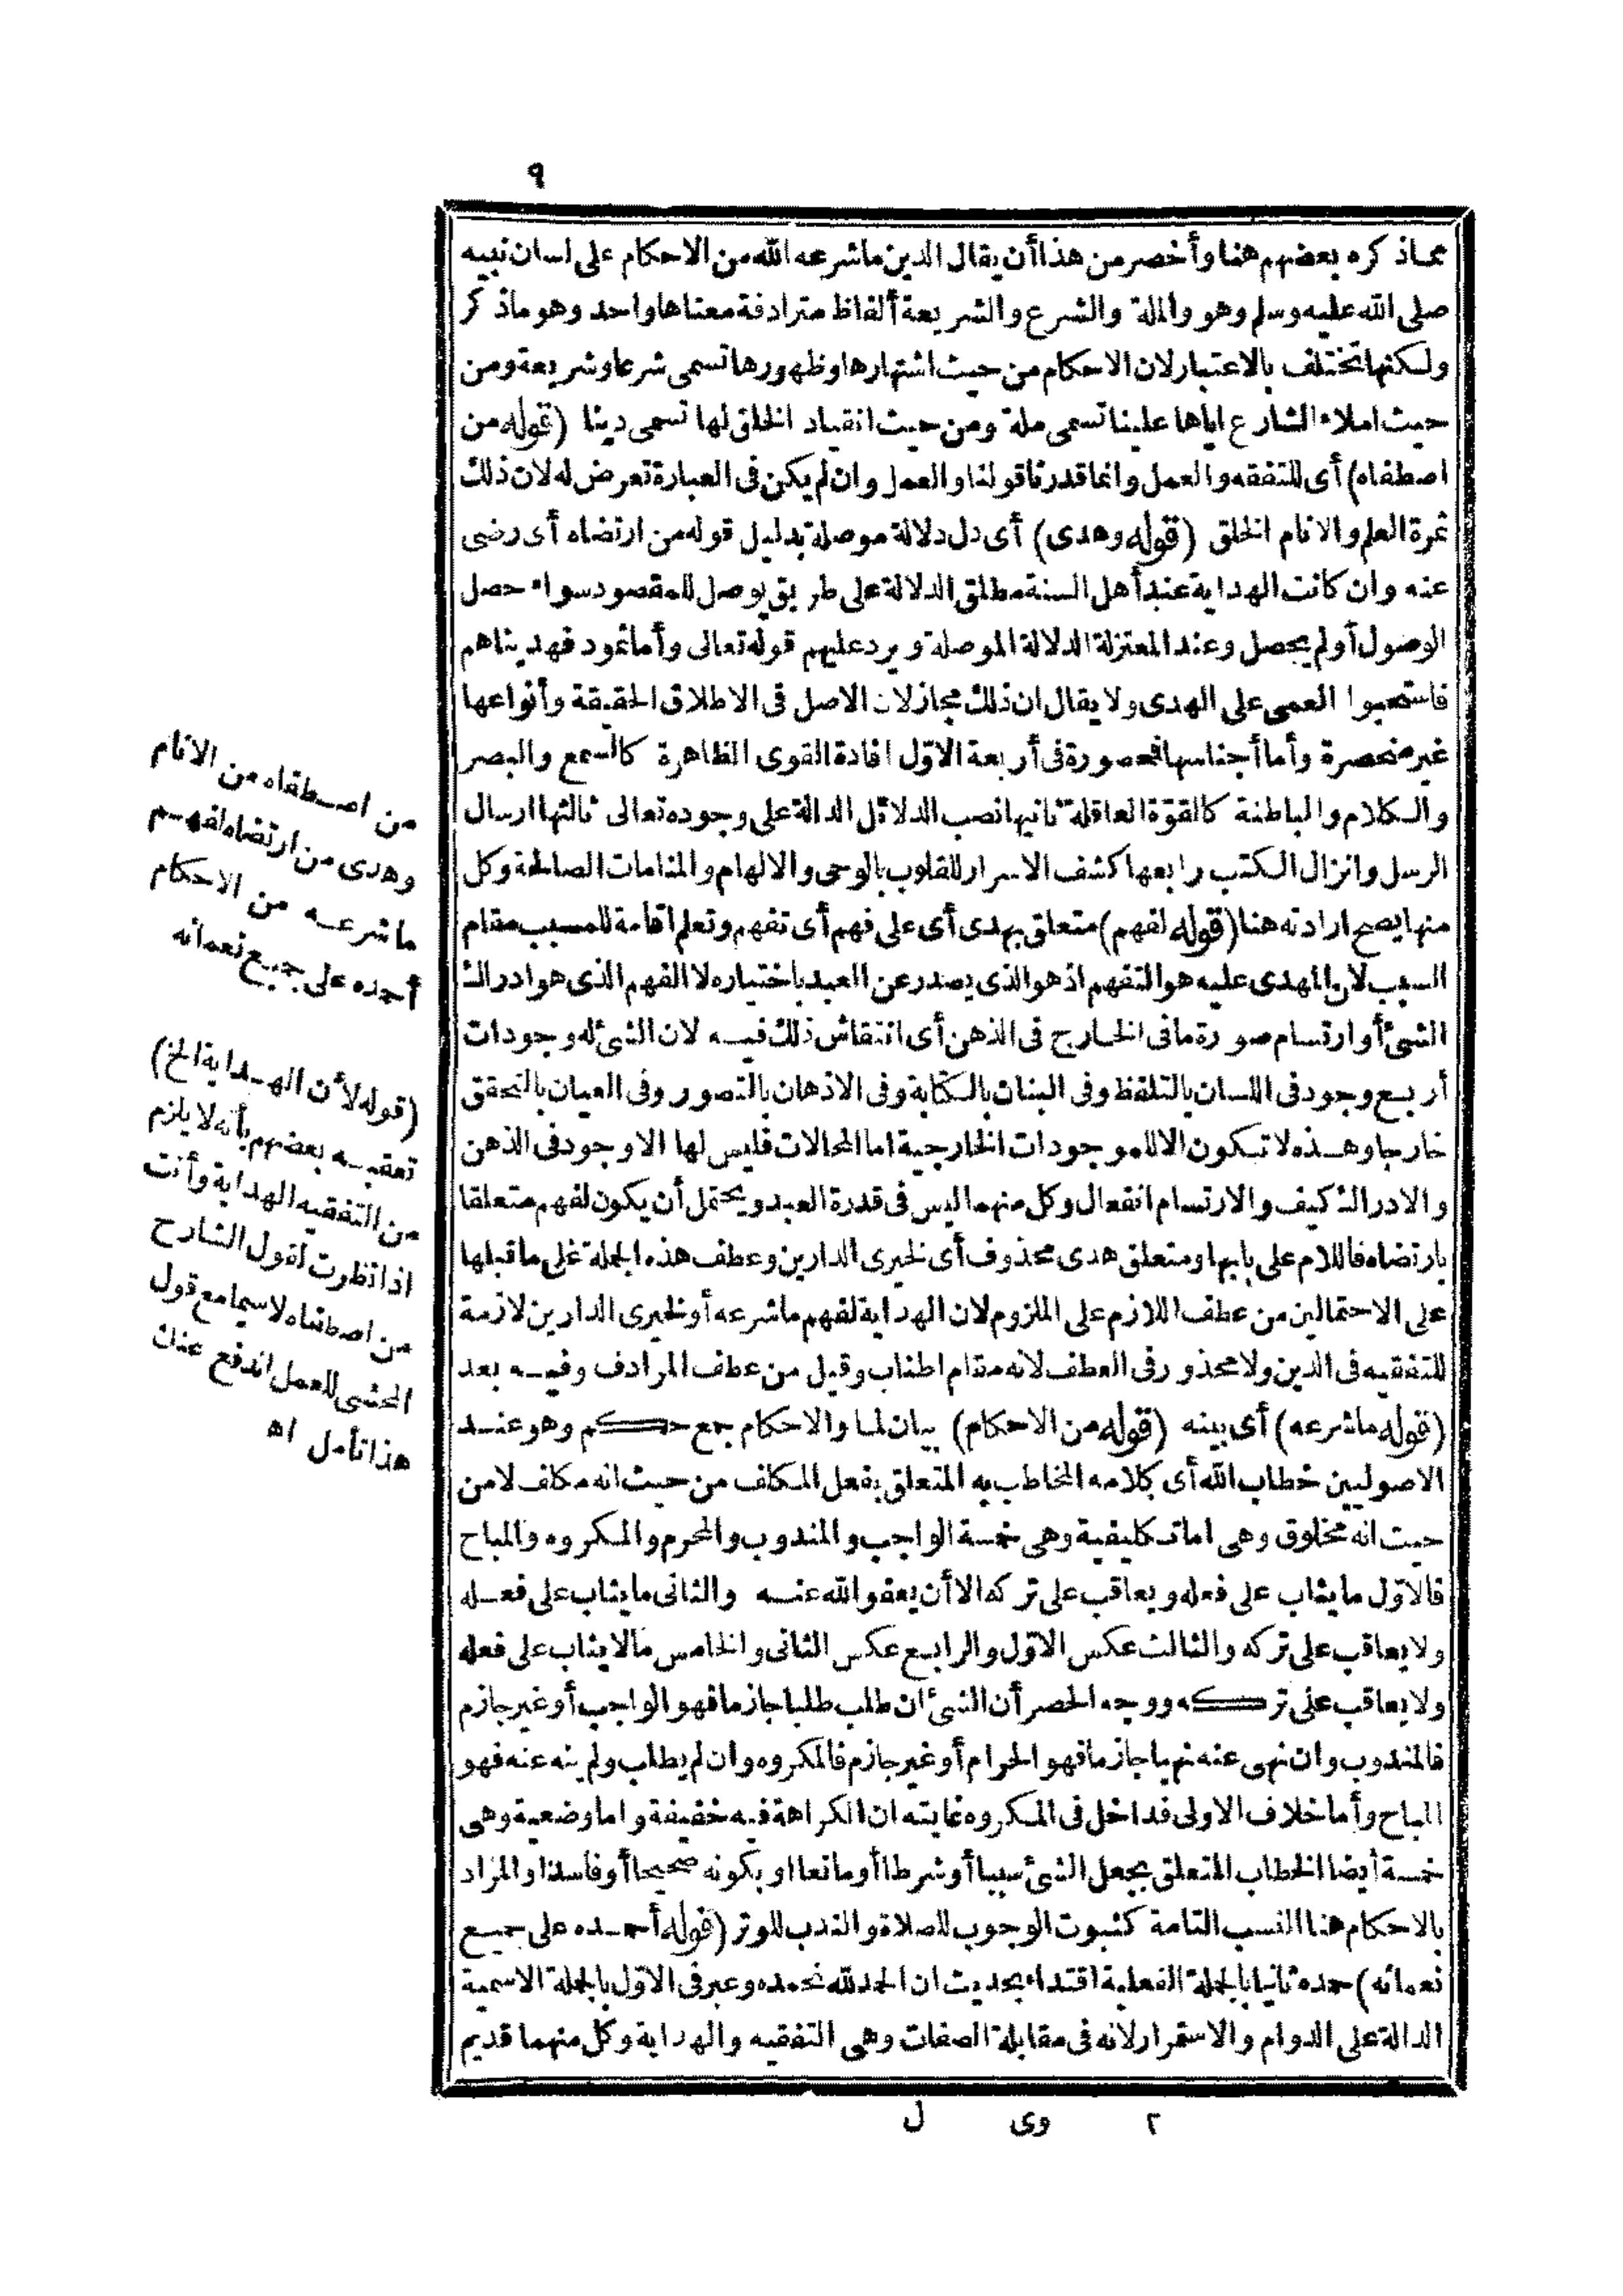 ٩
مماذكره بعضهم هنا وأخصر من هذا أن يقال الدين ما شرعه الله من الاحكام على لسان نبيه
صلى الله عليه وسلم وهو والملة والشرع والشريعة ألفاظ مترادفة معناها واحد وهو ماذكر
ولكنها تختلف بالاعتبار لان الاحكام من حيث اشتهارها وظهورها تسمى شرعا وشريعة ومن
حيث املاء الشارع اياها علينا تسمى ملة ومن حيث انقياد الخلق لها تسمى دينا (قوله من
اصطفاه) أى للتفقه والعمل وانما قدرنا قولنا والعمل وان لم يكن فى العبارة تعرض له لان ذلك
ثمرة العلم والانام الخلق (قوله وهدى) أى دل دلالة موصلة بدليل قوله من ارتضاه أى رضى
عنه وان كانت الهداية عند أهل السنة مطلق الدلالة على طريق يوصل للمقصود سواء حصل
الوصول أو لم يحصل وعند المعتزلة الدلالة الموصلة ويرد عليهم قوله تعالى وأما ثمود فهديناهم
فاستحبوا العمى على الهدى ولا يقال ان ذلك مجاز لان الاصل فى الاطلاق الحقيقة وأنواعها
غير منحصرة وأما أجناسها فمحصورة فى أربعة الاوّل افادة القوى الظاهرة كالسمع والبصر
والكلام والباطنة كالقوّة العاقلة ثانيها نصب الدلائل الدالة على وجوده تعالى ثالثها ارسال
الرسل وانزال الكتب رابعها كشف الاسرار للقلوب بالوحى والالهام والمنامات الصالحة وكل
منها يصح ارادته هنا (قوله لفهم) متعلق بهدى أى على فهم أى تفهم وتعلم اقامة للمسبب مقام
السبب لان المهدى عليه هو التفهم اذ هو الذى يصدر عن العبد باختياره لا الفهم الذى هو ادراك
الشئ أو ارتسام صورة ما فى الخارج فى الذهن أى انتقاش ذلك فيه لان الشئ له وجودات
أربع وجود فى اللسان بالتلفظ وفى البنان بالكتابة وفى الاذهان بالتصور وفى العيان بالتحقق
خارجا وهذه لا تكون الا للموجودات الخارجية اما المحالات فليس لها الا وجود فى الذهن
والادراك كيف والارتسام انفعال وكل منهما ليس فى قدرة العبد ويحتمل أن يكون لفهم متعلقا
بارتضاه فاللام على بابها ومتعلق هدى محذوف أى لخيرى الدارين وعطف هذه الجملة على ما قبلها
على الاحتمالين من عطف اللازم على الملزوم لان الهداية لفهم ما شرعه أو لخيرى الدارين لازمة
للتفقيه فى الدين ولا محذور فى العطف لانه مقام اطناب وقيل من عطف المرادف وفيه بعد
(قوله ما شرعه) أى بينه (قوله من الاحكام) بيان لما والاحكام جمع حكم وهو عند
الاصوليين خطاب الله أى كلامه المخاطب به المتعلق بفعل المكلف من حيث انه مكلف لا من
حيث انه مخلوق وهى اما تكليفية وهى خمسة الواجب والمندوب والمحرم والمكروه والمباح
فالاوّل ما يثاب على فعله ويعاقب على تركه الا أن يعفو الله عنه والثانى ما يثاب على فعله
ولا يعاقب على تركه والثالث عكس الاوّل والرابع عكس الثانى والخامس مالا يثاب على فعله
ولا يعاقب على تركه ووجه الحصر أن الشئ ان طلب طلبا جازما فهو الواجب أو غير جازم
فالمندوب وان نهى عنه نهيا جازما فهو الحرام أو غير جازم فالمكروه وان لم يطلب ولم ينه عنه فهو
المباح وأما خلاف الاولى فداخل فى المكروه غايته ان الكراهة فيه خفيفة واما وضعية وهى
خمسة أيضا الخطاب المتعلق بجعل الشئ سببا أو شرطا أو مانعا أو بكونه صحيحا أو فاسدا والمراد
بالاحكام هنا النسب التامة كثبوت الوجوب للصلاة والندب للوتر (قوله أحمده على جميع
نعمائه) حمده ثانيا بالجملة الفعلية اقتداء بحديث ان الحمد لله نحمده وعبر فى الاوّل بالجملة الاسمية
الدالة على الدوام والاستمرار لانه فى مقابلة الصفات وهى التفقيه والهداية وكل منهما قديم
٢ وى ل
من اصطفاه من الانام
وهدى من ارتضاه لفهم
ما شرعه من الاحكام
أحمده على جميع نعمائه
(قوله لأن الهداية الخ)
تعقبه بعضهم بأنه لا يلزم
من التفقيه الهداية وأنت
اذا نظرت لقول الشارح
من اصطفاه لاسيما مع قول
المحشى للعمل اندفع عنك
هذا تأمل اه